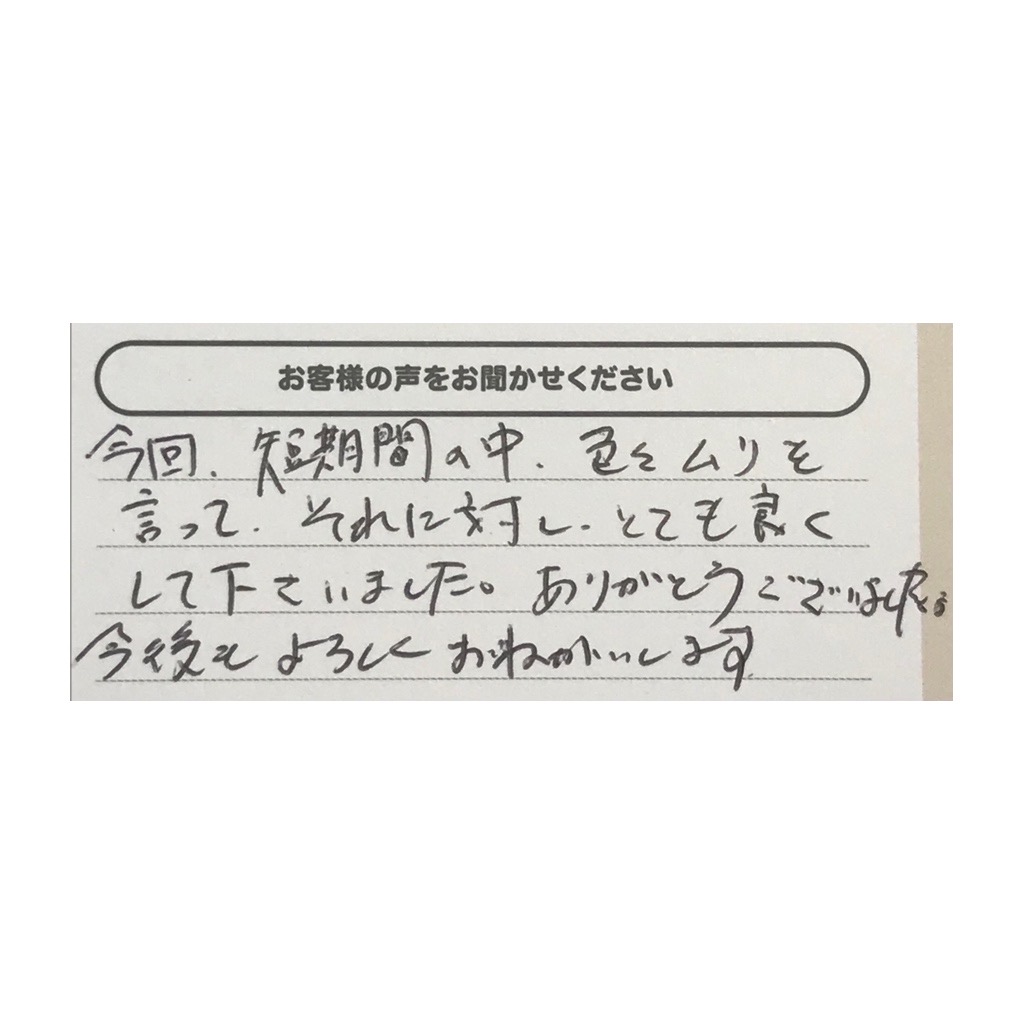 お客様の声をお聞かせください
今回、短期間の中、色々ムリを
言って、それに対し、とても良く
して下さいました。ありがとうございました。
今後もよろしくおねがいします